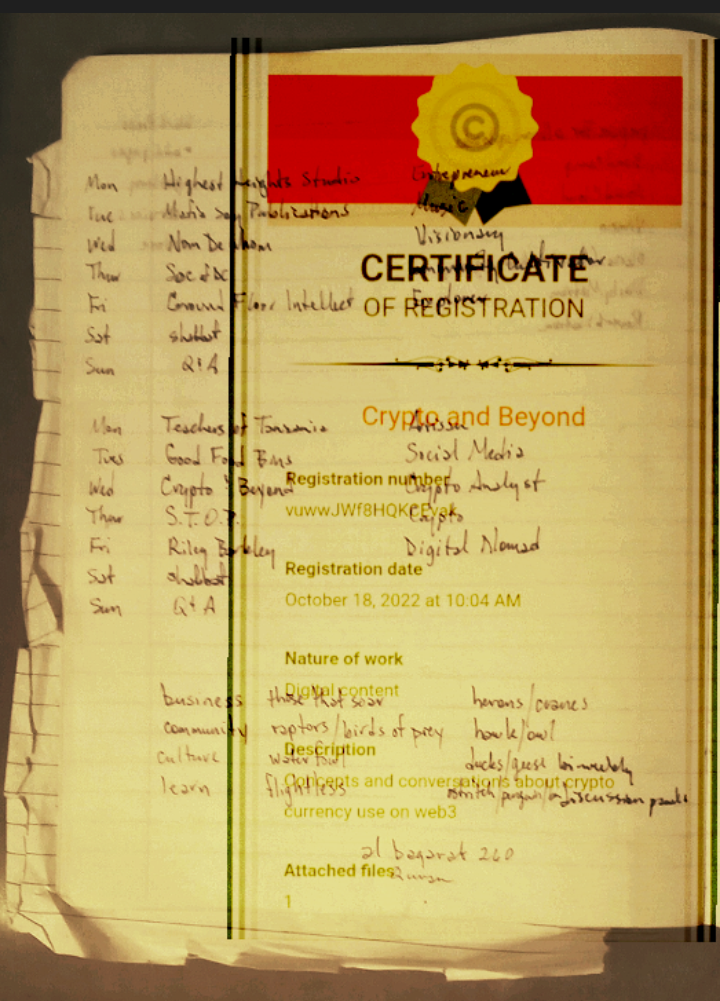 ©
Mon Highest Heights Studio Entrepreneur
Tue Mafia Publications Music
Wed Nom De Visionary
CERTIFICATE
Thur
Fri Ground Floor Intellect Explorer
OF REGISTRATION
Sat shabbat
Sun Q&A
Crypto and Beyond
Mon Teachers of Tanzania
Tues Good Food Social Media
Registration number
Wed Crypto & Beyond Crypto Analyst
Thur S.T.O.P. Crypto
Fri Riley Digital Nomad
Registration date
Sat shabbat
October 18, 2022 at 10:04 AM
Sun Q&A
Nature of work
Digital content
business those that soar herons/cranes
community raptors/birds of prey hawk/owl
Description
culture water fowl ducks/geese bi-weekly
Concepts and conversations about crypto
learn flightless discussion panels
currency use on web3
al baqarat 260
Attached files
Quran
1